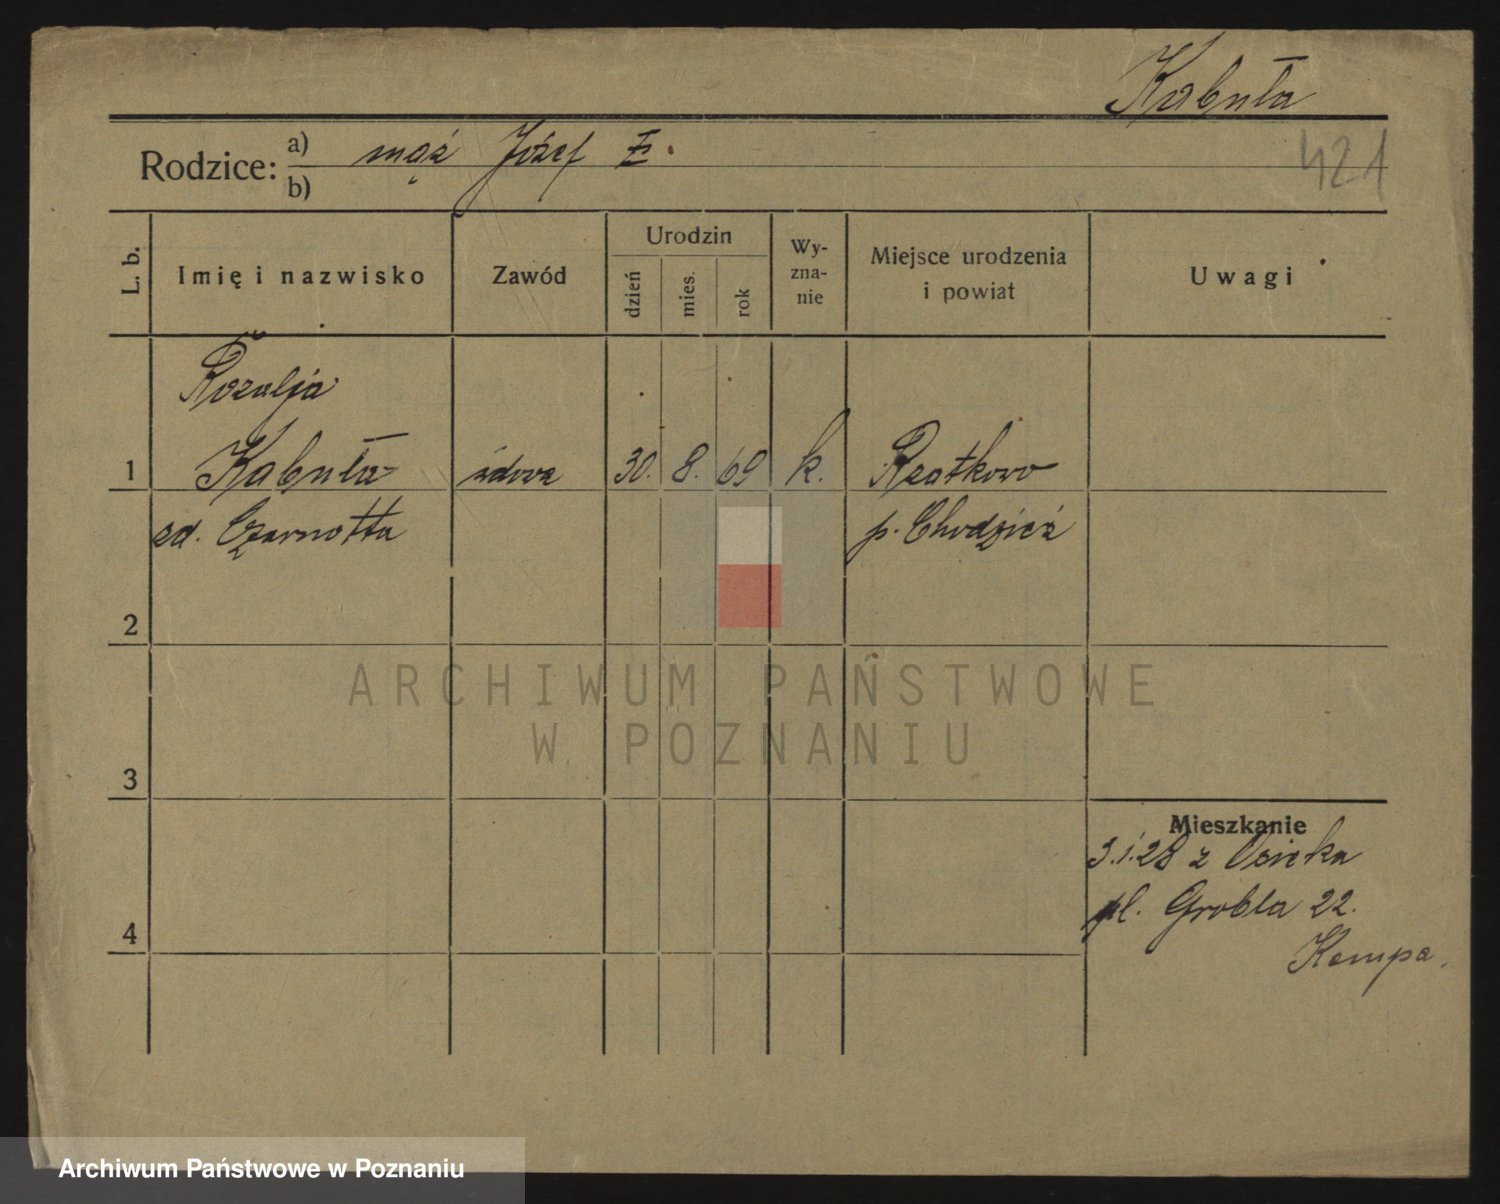 Kabuła
421
Rodzice: a) mąż Józef Ł.
b)
L. b. Imię i nazwisko Zawód Urodzin dzień mies. rok Wy-zna-nie Miejsce urodzenia i powiat Uwagi
Rozalja
1 Kabuła wdowa 30. 8. 69 k. Rzatkowo
zd. Czarnotta p. Chodzież
2
ARCHIWUM PAŃSTWOWE
W POZNANIU
3
Mieszkanie
3.1.28 z Osieka
pl. Grobla 22.
4
Kempa.
Archiwum Państwowe w Poznaniu